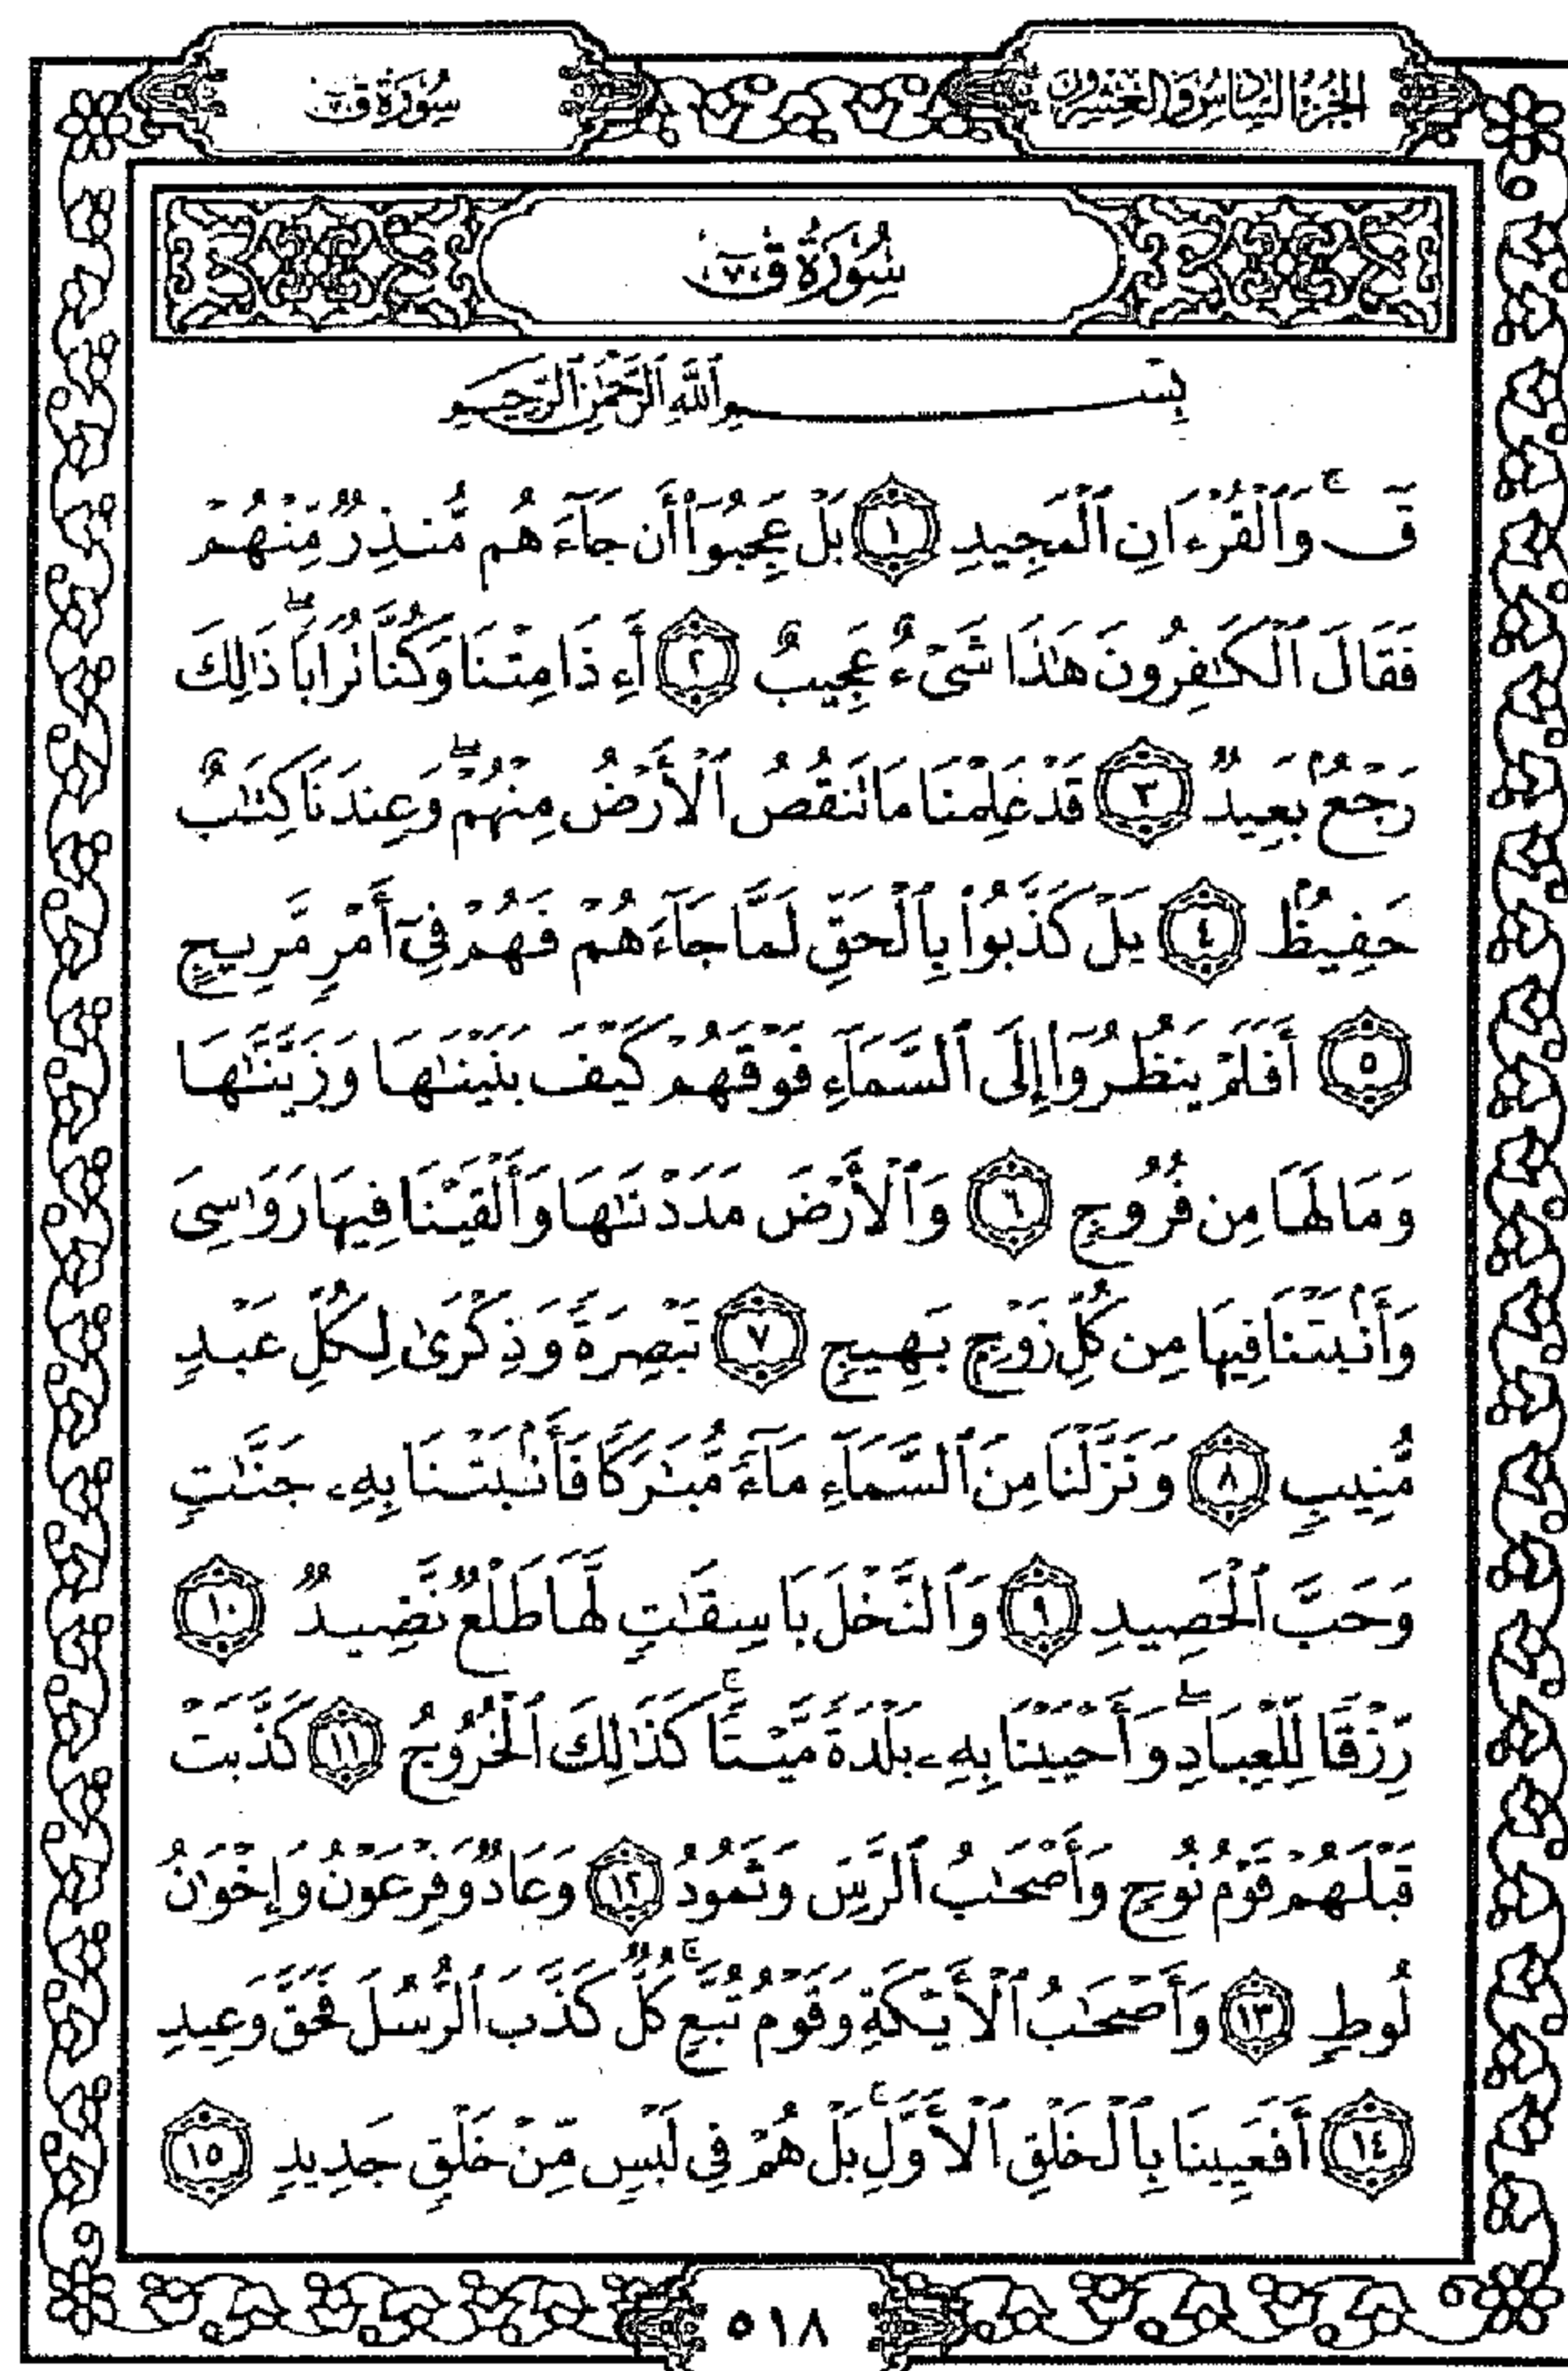 الجزء السادس والعشرون
سورة ق
سُورَةُ ق
بِسْمِ ٱللَّهِ ٱلرَّحْمَٰنِ ٱلرَّحِيمِ
قٓ ۚ وَٱلْقُرْءَانِ ٱلْمَجِيدِ ١ بَلْ عَجِبُوٓا۟ أَن جَآءَهُم مُّنذِرٌ مِّنْهُمْ
فَقَالَ ٱلْكَٰفِرُونَ هَٰذَا شَىْءٌ عَجِيبٌ ٢ أَءِذَا مِتْنَا وَكُنَّا تُرَابًا ۖ ذَٰلِكَ
رَجْعٌۢ بَعِيدٌ ٣ قَدْ عَلِمْنَا مَا تَنقُصُ ٱلْأَرْضُ مِنْهُمْ ۖ وَعِندَنَا كِتَٰبٌ
حَفِيظٌۢ ٤ بَلْ كَذَّبُوا۟ بِٱلْحَقِّ لَمَّا جَآءَهُمْ فَهُمْ فِىٓ أَمْرٍ مَّرِيجٍ
٥ أَفَلَمْ يَنظُرُوٓا۟ إِلَى ٱلسَّمَآءِ فَوْقَهُمْ كَيْفَ بَنَيْنَٰهَا وَزَيَّنَّٰهَا
وَمَا لَهَا مِن فُرُوجٍ ٦ وَٱلْأَرْضَ مَدَدْنَٰهَا وَأَلْقَيْنَا فِيهَا رَوَٰسِىَ
وَأَنۢبَتْنَا فِيهَا مِن كُلِّ زَوْجٍۭ بَهِيجٍ ٧ تَبْصِرَةً وَذِكْرَىٰ لِكُلِّ عَبْدٍ
مُّنِيبٍ ٨ وَنَزَّلْنَا مِنَ ٱلسَّمَآءِ مَآءً مُّبَٰرَكًا فَأَنۢبَتْنَا بِهِۦ جَنَّٰتٍ
وَحَبَّ ٱلْحَصِيدِ ٩ وَٱلنَّخْلَ بَاسِقَٰتٍ لَّهَا طَلْعٌ نَّضِيدٌ ١٠
رِّزْقًا لِّلْعِبَادِ ۖ وَأَحْيَيْنَا بِهِۦ بَلْدَةً مَّيْتًا ۚ كَذَٰلِكَ ٱلْخُرُوجُ ١١ كَذَّبَتْ
قَبْلَهُمْ قَوْمُ نُوحٍ وَأَصْحَٰبُ ٱلرَّسِّ وَثَمُودُ ١٢ وَعَادٌ وَفِرْعَوْنُ وَإِخْوَٰنُ
لُوطٍ ١٣ وَأَصْحَٰبُ ٱلْأَيْكَةِ وَقَوْمُ تُبَّعٍ ۚ كُلٌّ كَذَّبَ ٱلرُّسُلَ فَحَقَّ وَعِيدِ
١٤ أَفَعَيِينَا بِٱلْخَلْقِ ٱلْأَوَّلِ ۚ بَلْ هُمْ فِى لَبْسٍ مِّنْ خَلْقٍ جَدِيدٍ ١٥
٥١٨